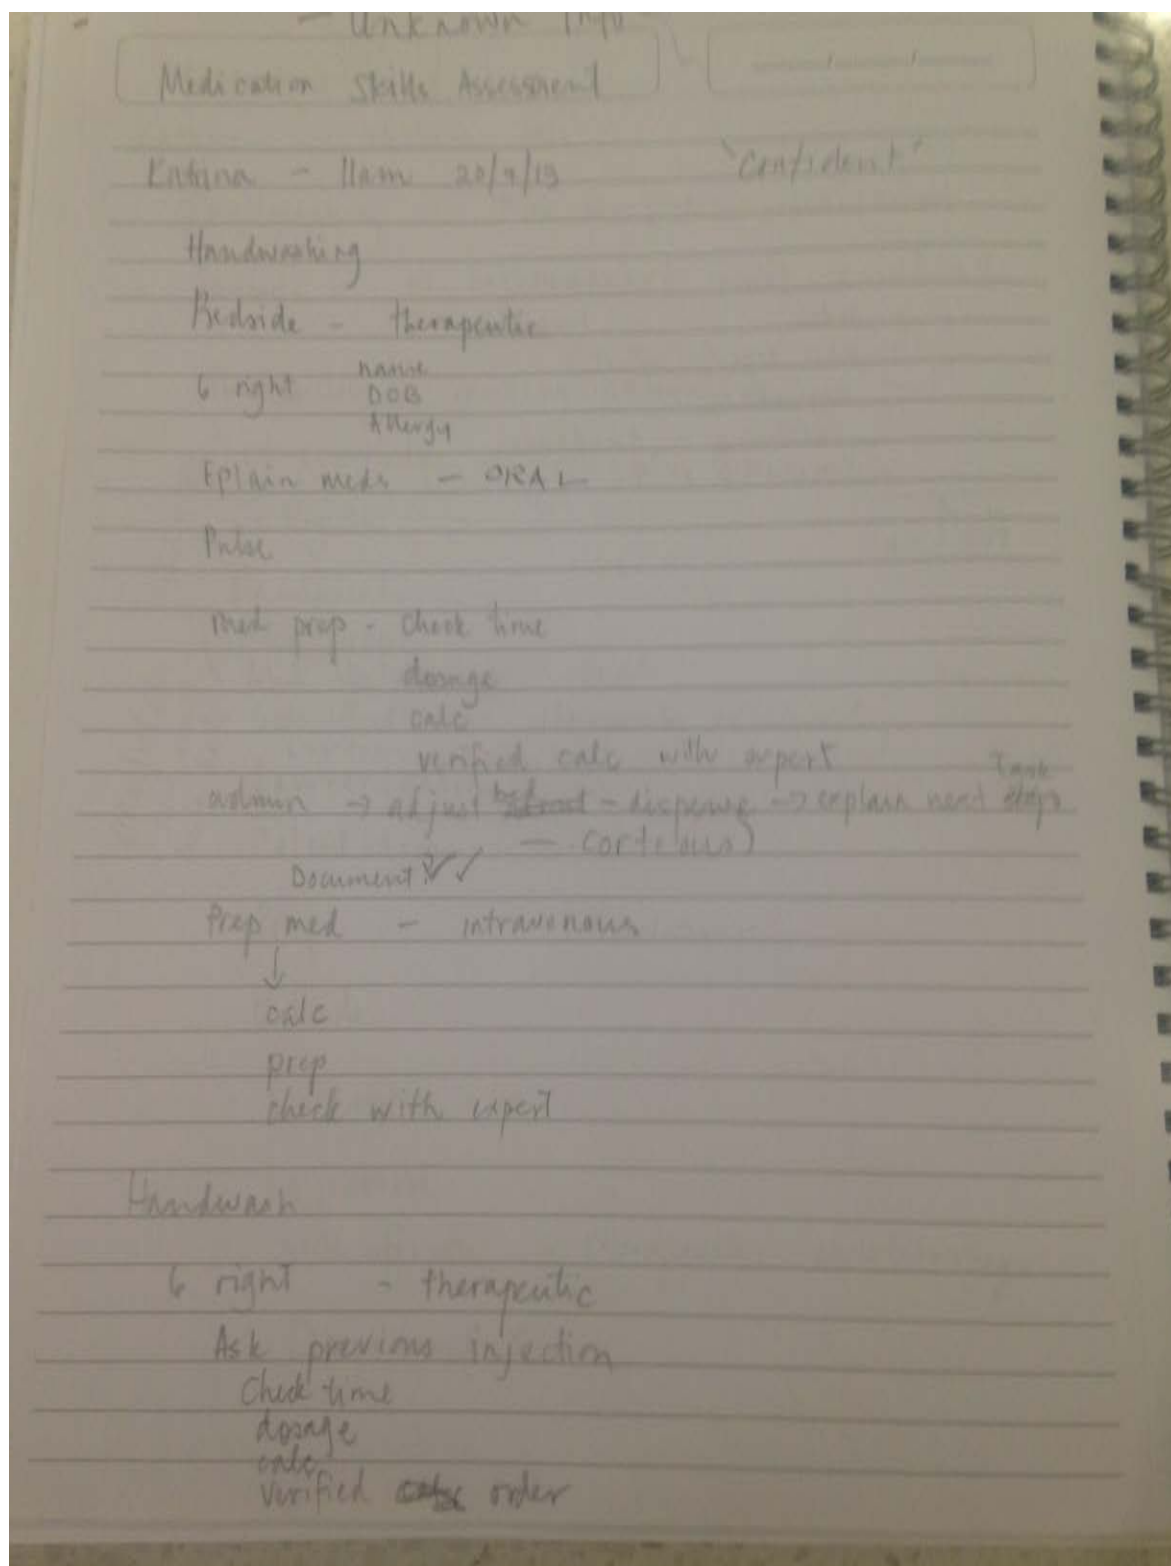 - Unknown Info
Medication Skills Assessment
- 11am 20/9/13 'Confident'
Handwashing
Bedside - therapeutic
6 right name
DOB
Allergy
Eplain meds - ORAL
Pulse
med prep - check time
dosage
calc
verified calc with expert
admin → adjust - dispense → explain next steps
Document ✓✓
Prep med - intravenous
↓
calc
prep
check with expert
Handwash
6 right - therapeutic
Ask previous injection
Check time
dosage
calc
verified order